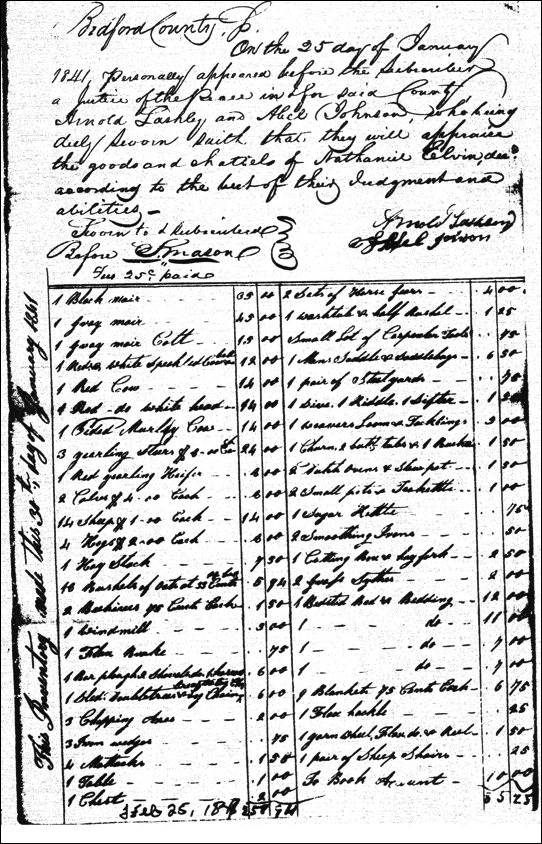 Bedford County, P.
On the 25 day of January
1841, Personally appeared before the Subscriber
a Justice of the Peace in & for said County,
Arnold Lashley and Abel Johnson, who being
duly sworn saith that they will appraise
the goods and chatiels of Nathaniel Elvin, de
according to the best of their Judgment and
abilities —
Sworn to & Subscribed
Before S. Mason
Arnold Lashley
Abel Jonson
Fee 25c paid
This Inventory made this 30th day of January 1841
1 Black mair 35 00
1 gray mair 45 00
1 gray mair Colt 15 00
1 Red & white Speckled Cow 12 00
1 Red Cow 14 00
1 Red do white head 14 00
1 Cow 14 00
3 yearling Stears 8 00 24 00
1 Red yearling Heifer 6 00
2 Calves 4 00 Each 8 00
14 Sheep 1 00 Each 14 00
4 Hogs 2 00 Each 8 00
1 Hay Stack 7 50
18 Bushels of Oats at 33 Cents 5 94
2 Beehives 75 Cents Each 1 50
1 windmill 3 00
1 Flax Brake 75
1 Bar plough 2 Shovel do 6 00
1 Sled, Doubletree & Log Chain 6 00
3 Chopping Axes 2 00
3 Iron wedges 75
4 Mattocks 1 50
1 Table 1 00
1 Chest 2 00
Feb 25, 18
2 Sets of Horse gears 4 00
1 washtub & half Bushel 1 25
Small Lot of Carpenter Tools 75
1 Mens Saddle & Saddlebags 6 50
1 pair of Steelyards 75
1 Sieve, 1 Riddle, 1 Sifter
1 weavers Loom & Tacklings 9 00
1 Churn, 2 tubs & 1 Bucket 1 50
2 Dutch Ovens & Stewpot 1 50
2 Small pots & Teakettle 1 00
1 Sugar Kettle 75
2 Smoothing Irons 50
1 Cutting Box & hay fork 2 50
2 Grass Sythes 2 00
1 Bedsted Bed & Bedding 12 00
1 do 11 00
1 do 7 00
1 do 7 00
9 Blankets 75 Cents Each 6 75
1 Flax hackle 25
1 yarn wheel, Flax do & Reel 1 50
1 pair of Sheep Shairs 25
To Book Acount 10 00